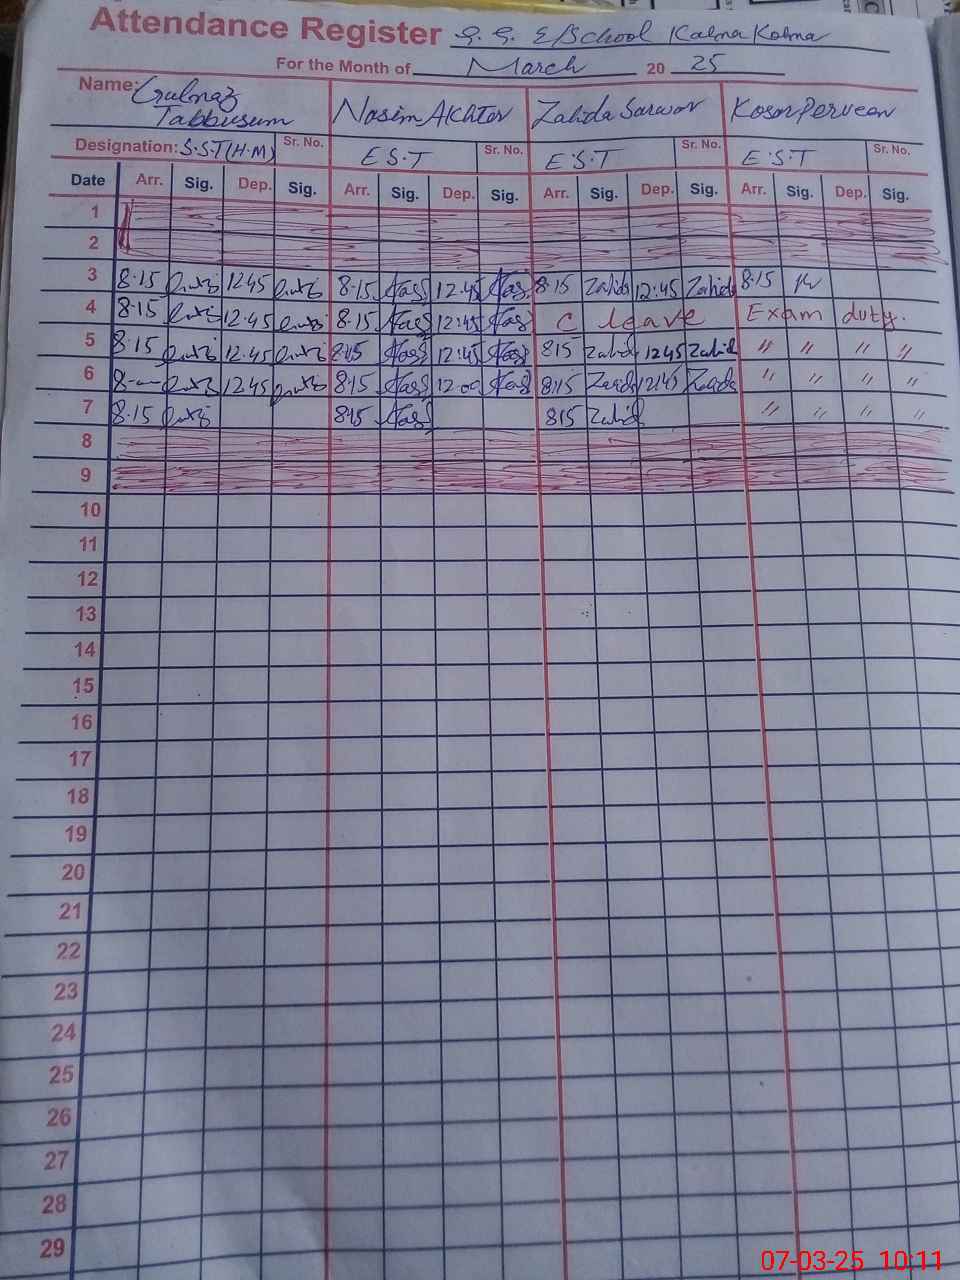 Attendance Register G. G. E/School Kalma Kalma
For the Month of March 20 25
Name: Gulnaz Tabbusum Nasim Akhter Zahida Sarwar Kosar Perveen
Designation: S.S.T (H.M) Sr. No. E S.T Sr. No. E S.T Sr. No. E S.T Sr. No.
Date Arr. Sig. Dep. Sig. Arr. Sig. Dep. Sig. Arr. Sig. Dep. Sig. Arr. Sig. Dep. Sig.
1
2
3 8.15 12 45 8.15 12:45 8.15 Zahida 12:45 Zahida 8.15
4 8.15 12.45 8.15 12:45 C leave Exam duty.
5 8.15 12.45 8.15 12:45 815 Zahid 1245 Zahid " " " "
6 8-- 12 45 8.15 12 00 8.15 12.45 " " " "
7 8.15 8.15 815 Zahid " " " "
8
9
10
11
12
13
14
15
16
17
18
19
20
21
22
23
24
25
26
27
28
29
07-03-25 10:11